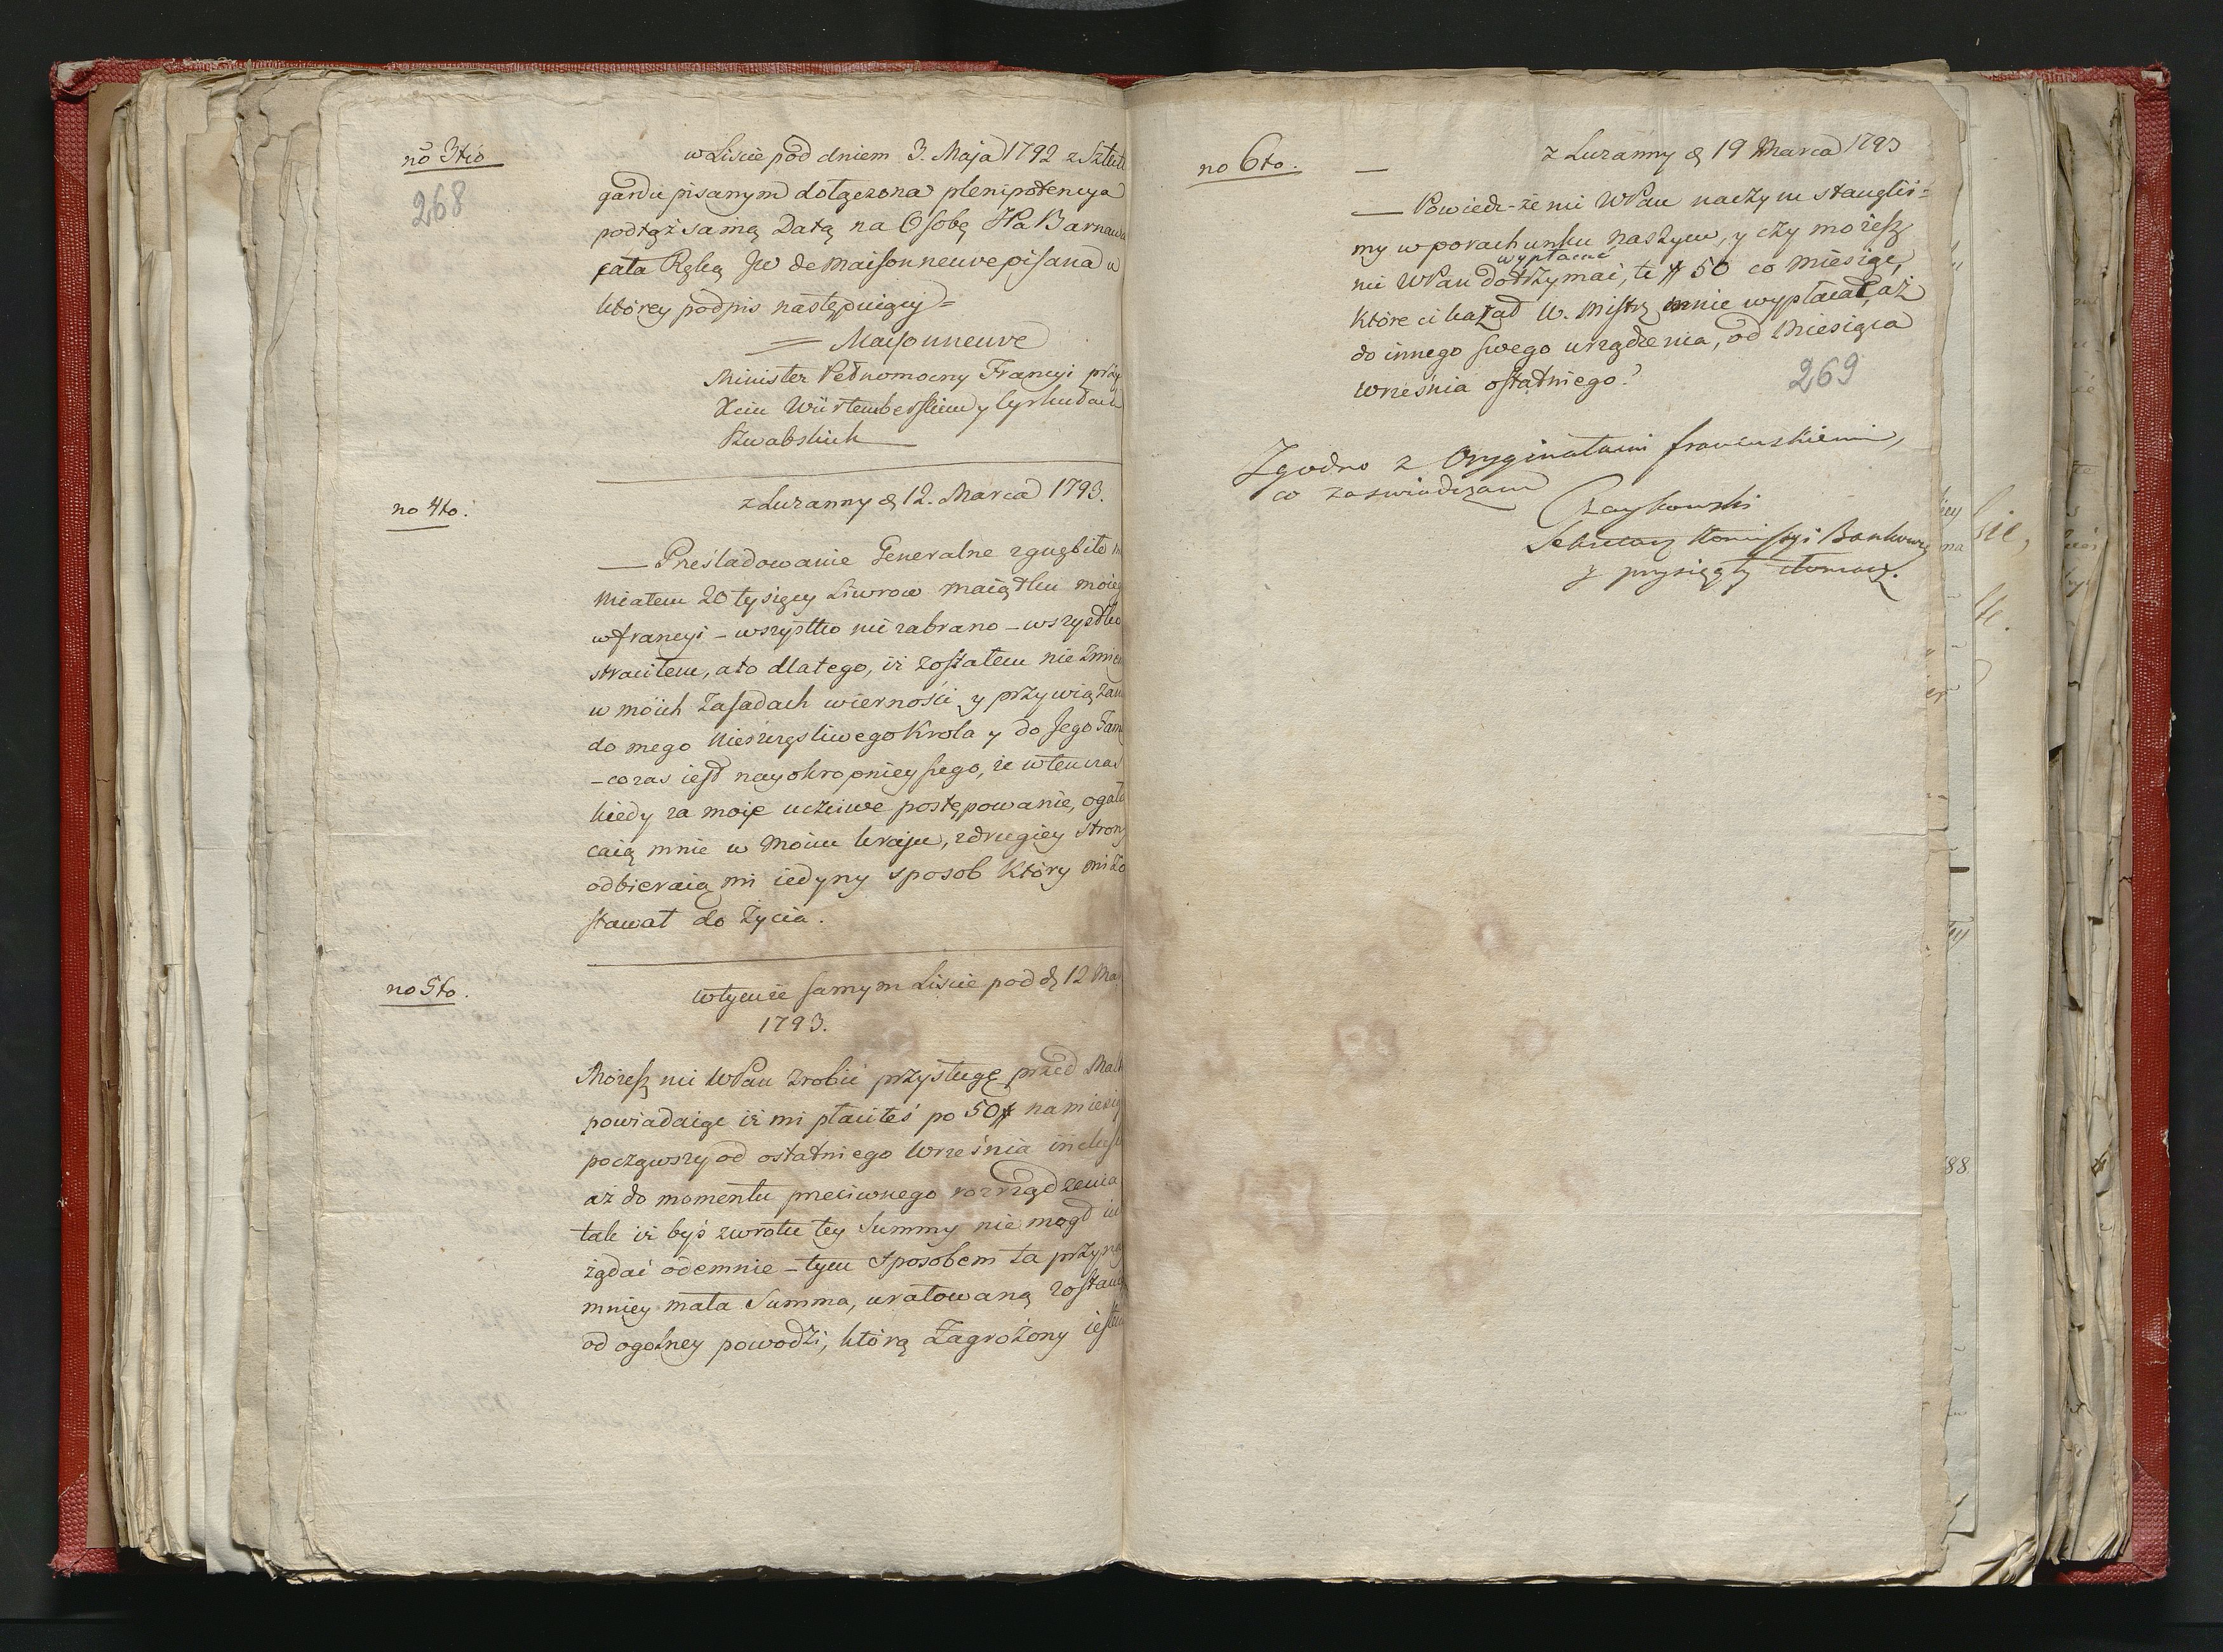 nō 3tio
268
w Liscie pod dniem 3. Maja 1792 z Sztut
gardu pisanym dołączona plenipotencya
podtąż samą Datą na Osobę JPa Barnawa
całą Ręką JW de Maisonneuve pisana w
którey podpis następuiący =
= Maisonneuve
Minister Pełnomocny Francyi przy
Xciu Würtemberskim y Cyrkułach
Szwabskich
no 4to.
z Luzanny d. 12. Marca 1793.
— Prześladowanie Generalne zgnębiło m
Miałem 20 tysięcy Liwrow maiątku moieg
w francyi – wszystko mi zabrano – wszystko
straciłem, ato dlatego, iż zostałem nie zmien
w moich zasadach wierności y przywiązan
do mego Nieszczęsliwego Krola y do Jego Fam
– coraz iest nayokropnieyszego, że wtenczas
kiedy za moie uczciwe postępowanie, ogała
caią mnie w moim kraju, z drugiey strony
odbieraią mi iedyny sposob który mi zo
stawał do życia.
no 5to.
w tymże samym Liscie pod d. 12 Ma
1793.
Możesz mi WPan zrobić przysługę przed Malt
powiadaiąc iż mi płaciłeś po 50 # na miesią
począwszy od ostatniego Września inclus
aż do momentu przeciwnego rozrządzenia
tak iż byś zwrotu tey Summy nie mogł
żądać odemnie – tym sposobem ta przyna
mniey mała Summa, uratowaną zostanie
od ogolney powodzi, którą zagrożony iestem
no 6to.
z Luzanny d. 19 Marca 1793
—
— Powiedz-że mi WPan na czym stanęliś=
my w porachunku naszym, y czy możesz
wypłacać
mi WPan dotrzymać, te # 50 co miesiąc,
które ci kazał W. Mistrz mnie wypłacać, aż
do innego swego urządzenia, od Miesiąca
Września ostatniego?
269
Zgodno z Oryginałami francuskiemi,
co zaswiadczam
Czaykowski
Sekretarz Komissyi Bankowey
y przysięgły tłomacz.